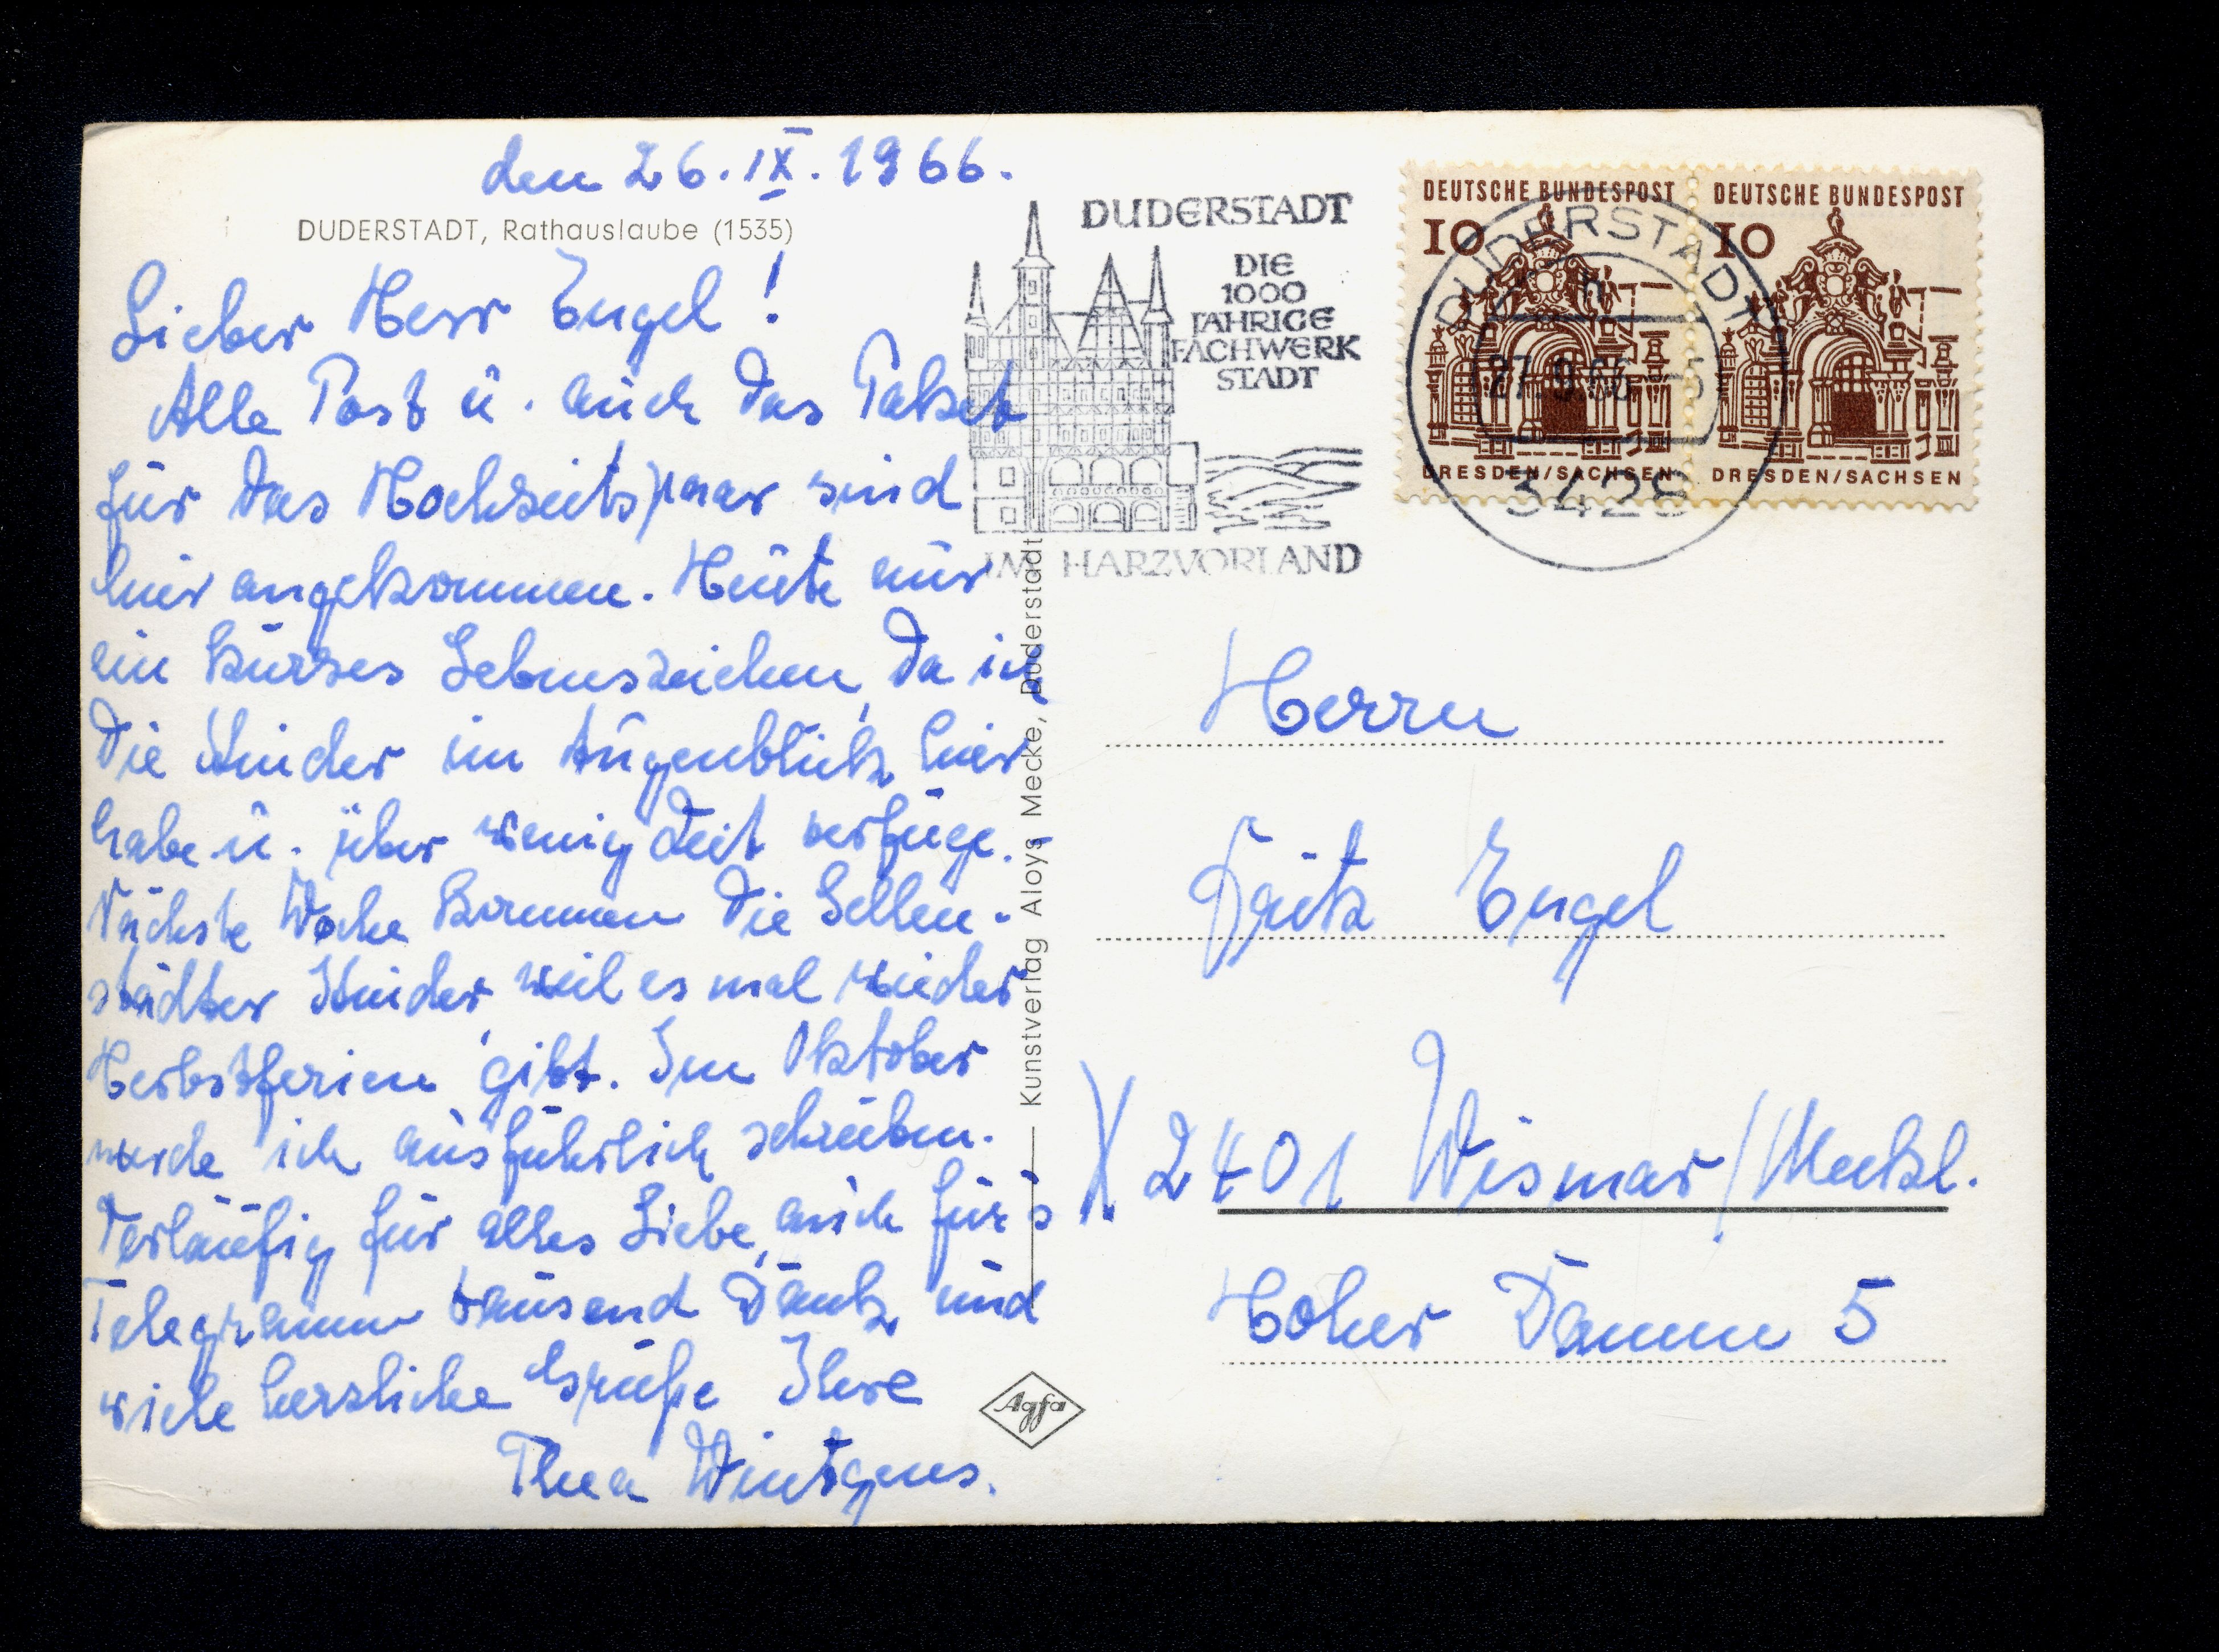 den 26. IX. 1966.
DUDERSTADT, Rathauslaube (1535)
Lieber Herr Engel!
Alle Post ü. auch das Paket
für das Hochzeitspaar sind
hier angekommen. Heute nur
ein kurzes Lebenszeichen, da ich
die Kinder im Augenblick hier
habe u. über wenig Zeit verfüge.
Nächste Woche kommen die Gellen-
städter Kinder, weil es mal wieder
Herbstferien gibt. Im Oktober
werde ich ausführlich schreiben.
Vorläufig für alles Liebe, auch für's
Telegramm tausend Dank und
viele herzliche Grüße Ihre
Thea Wintgens.
Kunstverlag Aloys Mecke, Duderstadt
Agfa
DUDERSTADT
DIE
1000
JÄHRIGE
FACHWERK
STADT
IM HARZVORLAND
DEUTSCHE BUNDESPOST
10
DRESDEN/SACHSEN
DEUTSCHE BUNDESPOST
10
DRESDEN/SACHSEN
DUDERSTADT
27.9.66-5
3428
Herrn
Fritz Engel
X 2401 Wismar/Meckl.
Hoher Damm 5